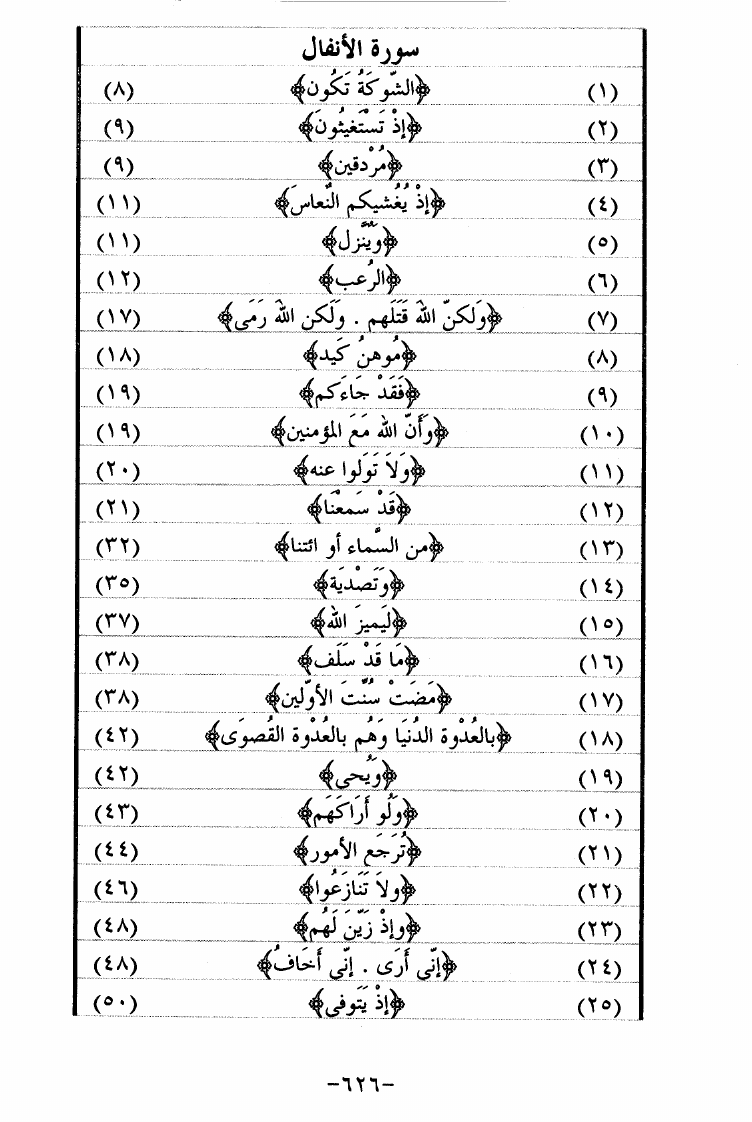 سورة الأنفال
(١) ﴿الشّوكَةُ تَكُون﴾ (٨)
(٢) ﴿إذْ تَسْتَغيثُونَ﴾ (٩)
(٣) ﴿مُرْدقين﴾ (٩)
(٤) ﴿إذْ يُغْشيكم النُّعاسَ﴾ (١١)
(٥) ﴿وَيُنَّزل﴾ (١١)
(٦) ﴿الرُعب﴾ (١٢)
(٧) ﴿وَلَكنّ اللهَ قَتَلَهم . وَلَكن اللهَ رَمَى﴾ (١٧)
(٨) ﴿مُوهنُ كَيد﴾ (١٨)
(٩) ﴿فَقَدْ جَاءَكم﴾ (١٩)
(١٠) ﴿وَأَنّ الله مَعَ المؤمنين﴾ (١٩)
(١١) ﴿وَلاَ تَولوا عنه﴾ (٢٠)
(١٢) ﴿قَدْ سَمعْنَا﴾ (٢١)
(١٣) ﴿من السَّماء أو ائتنا﴾ (٣٢)
(١٤) ﴿وَتَصْديَة﴾ (٣٥)
(١٥) ﴿ليَميزَ الله﴾ (٣٧)
(١٦) ﴿مَا قَدْ سَلَف﴾ (٣٨)
(١٧) ﴿مَضَتْ سُنَّتَ الأوّلين﴾ (٣٨)
(١٨) ﴿بالعُدْوة الدُنيَا وَهُم بالعُدْوة القُصوَى﴾ (٤٢)
(١٩) ﴿وَيُحى﴾ (٤٢)
(٢٠) ﴿وَلَو أَرَاكَهَم﴾ (٤٣)
(٢١) ﴿تُرجَع الأمور﴾ (٤٤)
(٢٢) ﴿ولاَ تَنَازَعُوا﴾ (٤٦)
(٢٣) ﴿وإذْ زَيّنَ لَهُم﴾ (٤٨)
(٢٤) ﴿إنّى أَرَى . إنّى أَخَافُ﴾ (٤٨)
(٢٥) ﴿إذْ يَتَوفى﴾ (٥٠)
-٦٢٦-